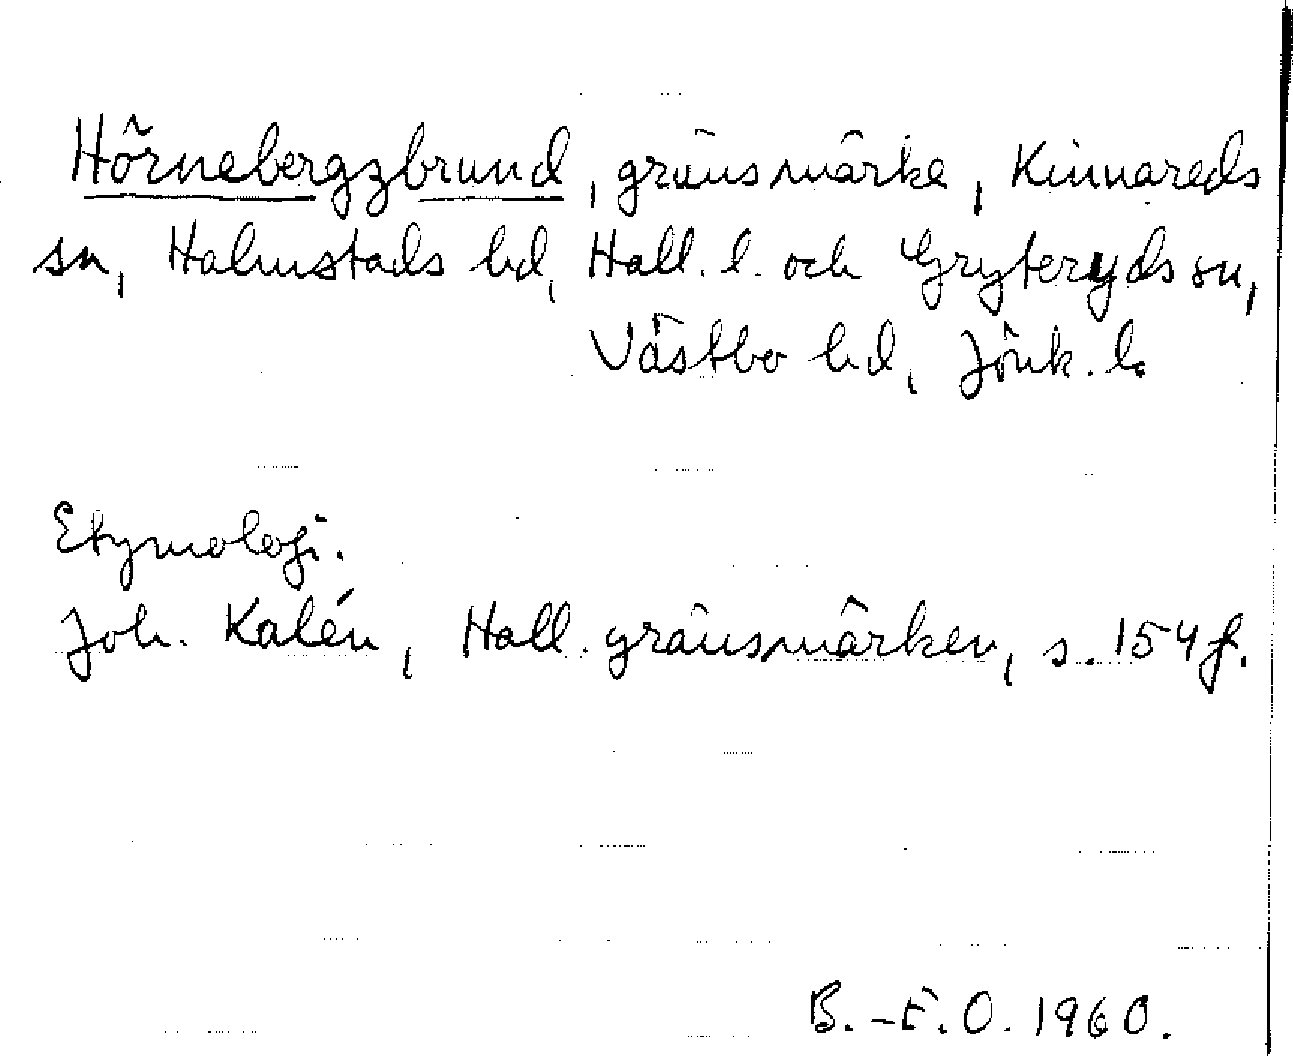 Hörnebergzbrund, gränsmärke, Kinnareds
sn, Halmstads hd, Hall. l. och Gryteryds sn,
Västbo hd, Jönk. l.
Etymologi.
Joh. Kalén, Hall. gränsmärken, s. 154 f.
B.-E. O. 1960.